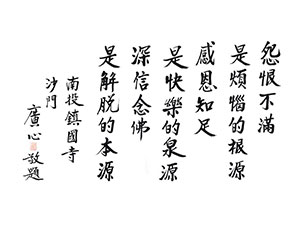 怨恨不滿
是煩惱的根源
感恩知足
是快樂的泉源
深信念佛
是解脫的本源
南投鎮國寺
沙門
廣心
敬題